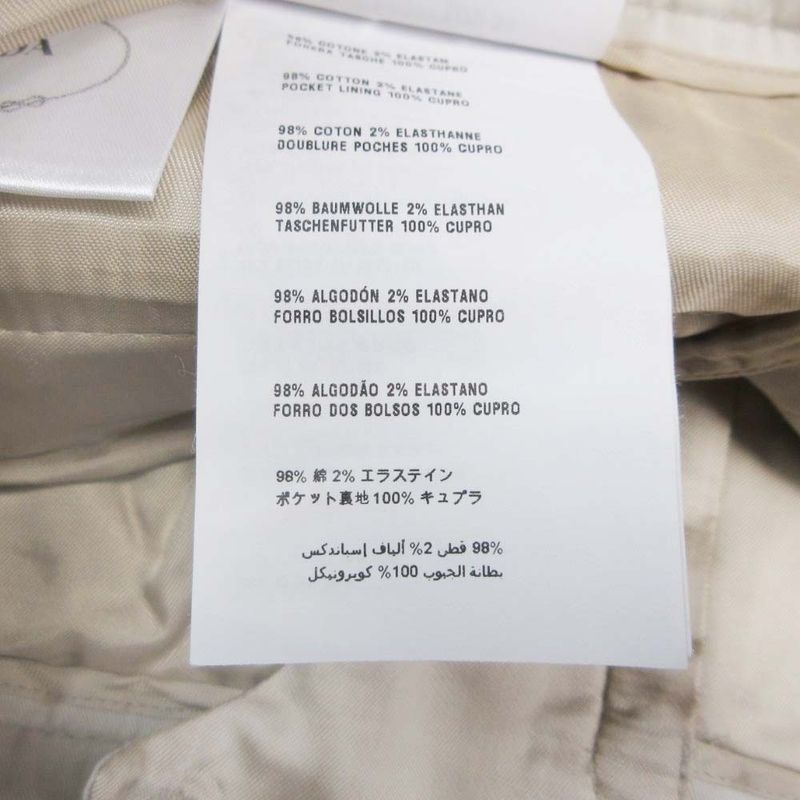 98% COTONE 2% ELASTAN
FODERA TASCHE 100% CUPRO
98% COTTON 2% ELASTANE
POCKET LINING 100% CUPRO
98% COTON 2% ELASTHANNE
DOUBLURE POCHES 100% CUPRO
98% BAUMWOLLE 2% ELASTHAN
TASCHENFUTTER 100% CUPRO
98% ALGODÓN 2% ELASTANO
FORRO BOLSILLOS 100% CUPRO
98% ALGODÃO 2% ELASTANO
FORRO DOS BOLSOS 100% CUPRO
98% 綿 2% エラステイン
ポケット裏地100% キュプラ
98% قطن 2% ألياف إسباندكس
بطانة الجيوب 100% كوبرونيكل